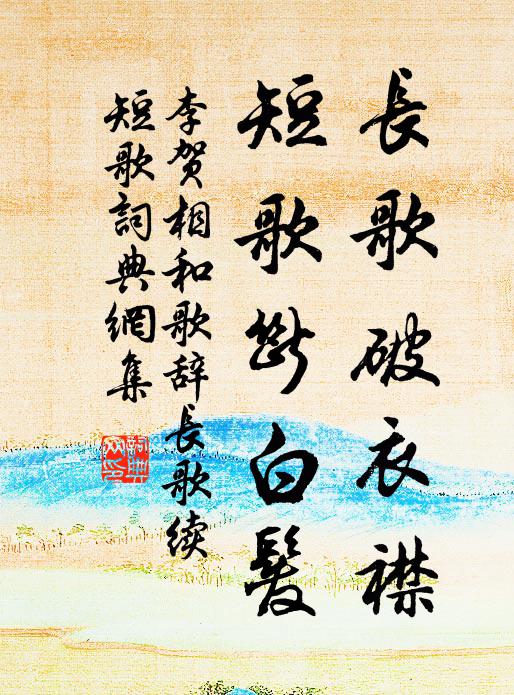 長歌破衣襟
短歌斷白髮
李贺相和歌辞長歌续
短歌詞典網集
詞典网印